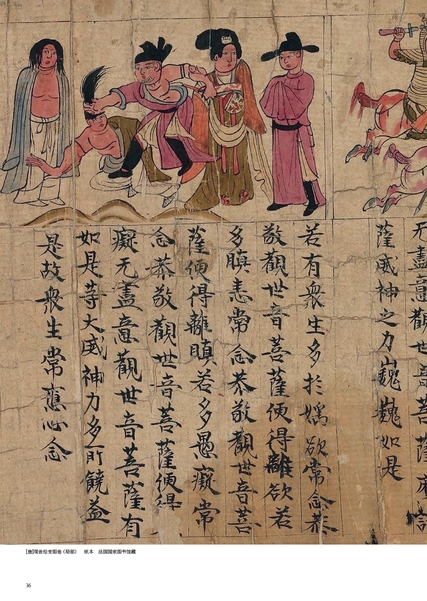 无盡意觀世音菩薩摩訶
薩威神之力巍巍如是
若有衆生多於婬欲常念恭
敬觀世音菩薩便得離欲若
多瞋恚常念恭敬觀世音菩
薩便得離瞋若多愚癡常
念恭敬觀世音菩薩便得
癡无盡意觀世音菩薩有
如是等大威神力多所饒益
是故衆生常應心念
[唐]观音经变图卷（局部） 纸本 法国国家图书馆藏
36